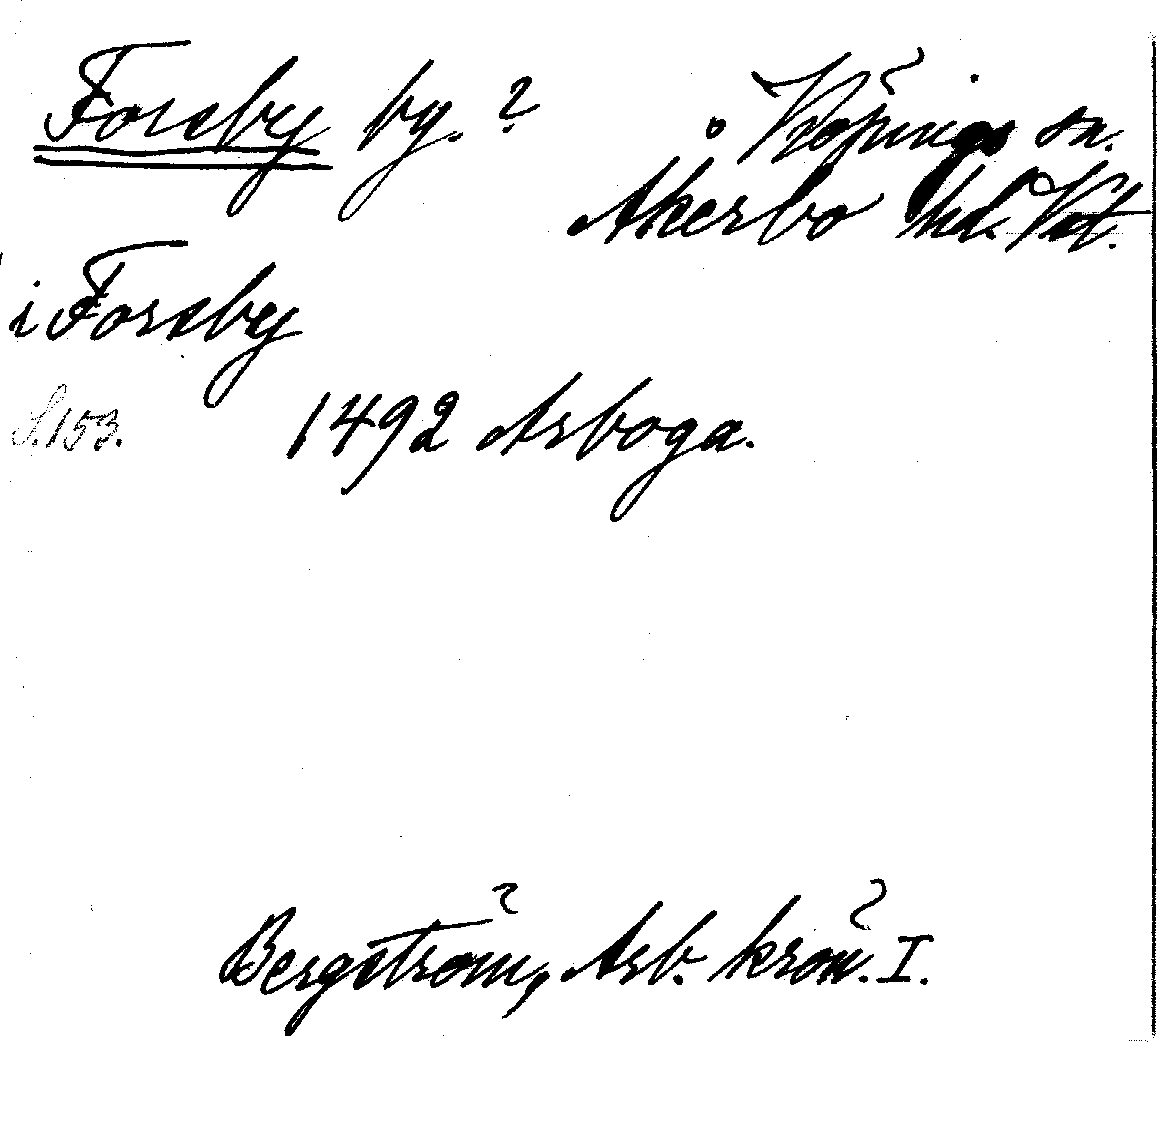 Forsby by. ? Köpings sn.
Åkerbo hd. Vstl.
i Forsby
S. 153. 1492 Arboga.
Bergström, Arb. krön. I.